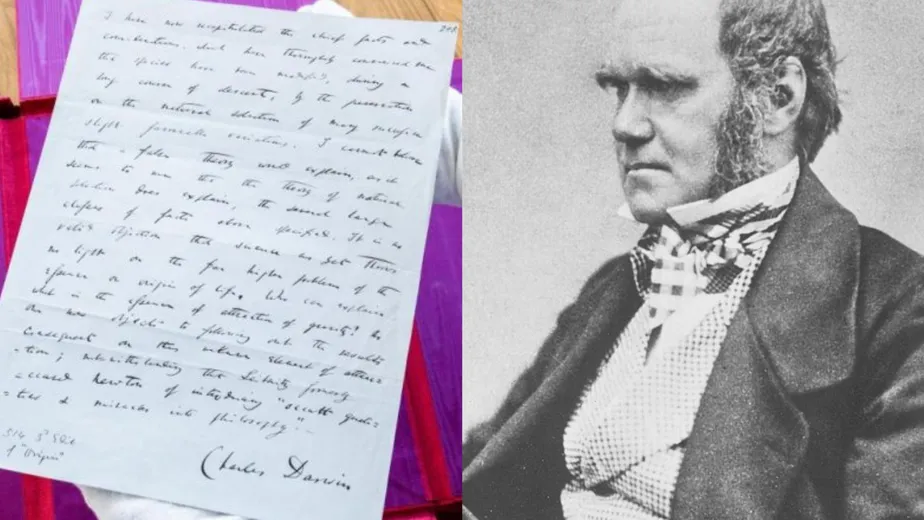 I have now recapitulated the chief facts and
considerations, which have thoroughly convinced me
that species have been modified, during a
long course of descent, by the preservation
or the natural selection of many successive
slight favourable variations. I cannot believe
that a false theory would explain, as it
seems to me that the theory of natural
selection does explain, the several large
classes of facts above specified. It is no
valid objection that science as yet throws
no light on the far higher problem of the
essence or origin of life. Who can explain
what is the essence of attraction of gravity? No
one now objects to following out the results
consequent on this unknown element of attrac
-tion; notwithstanding that Leibnitz formerly
accused Newton of introducing "occult quali-
-ties & miracles into philosophy".—
Charles Darwin
514 3d Edit
of "Origin"